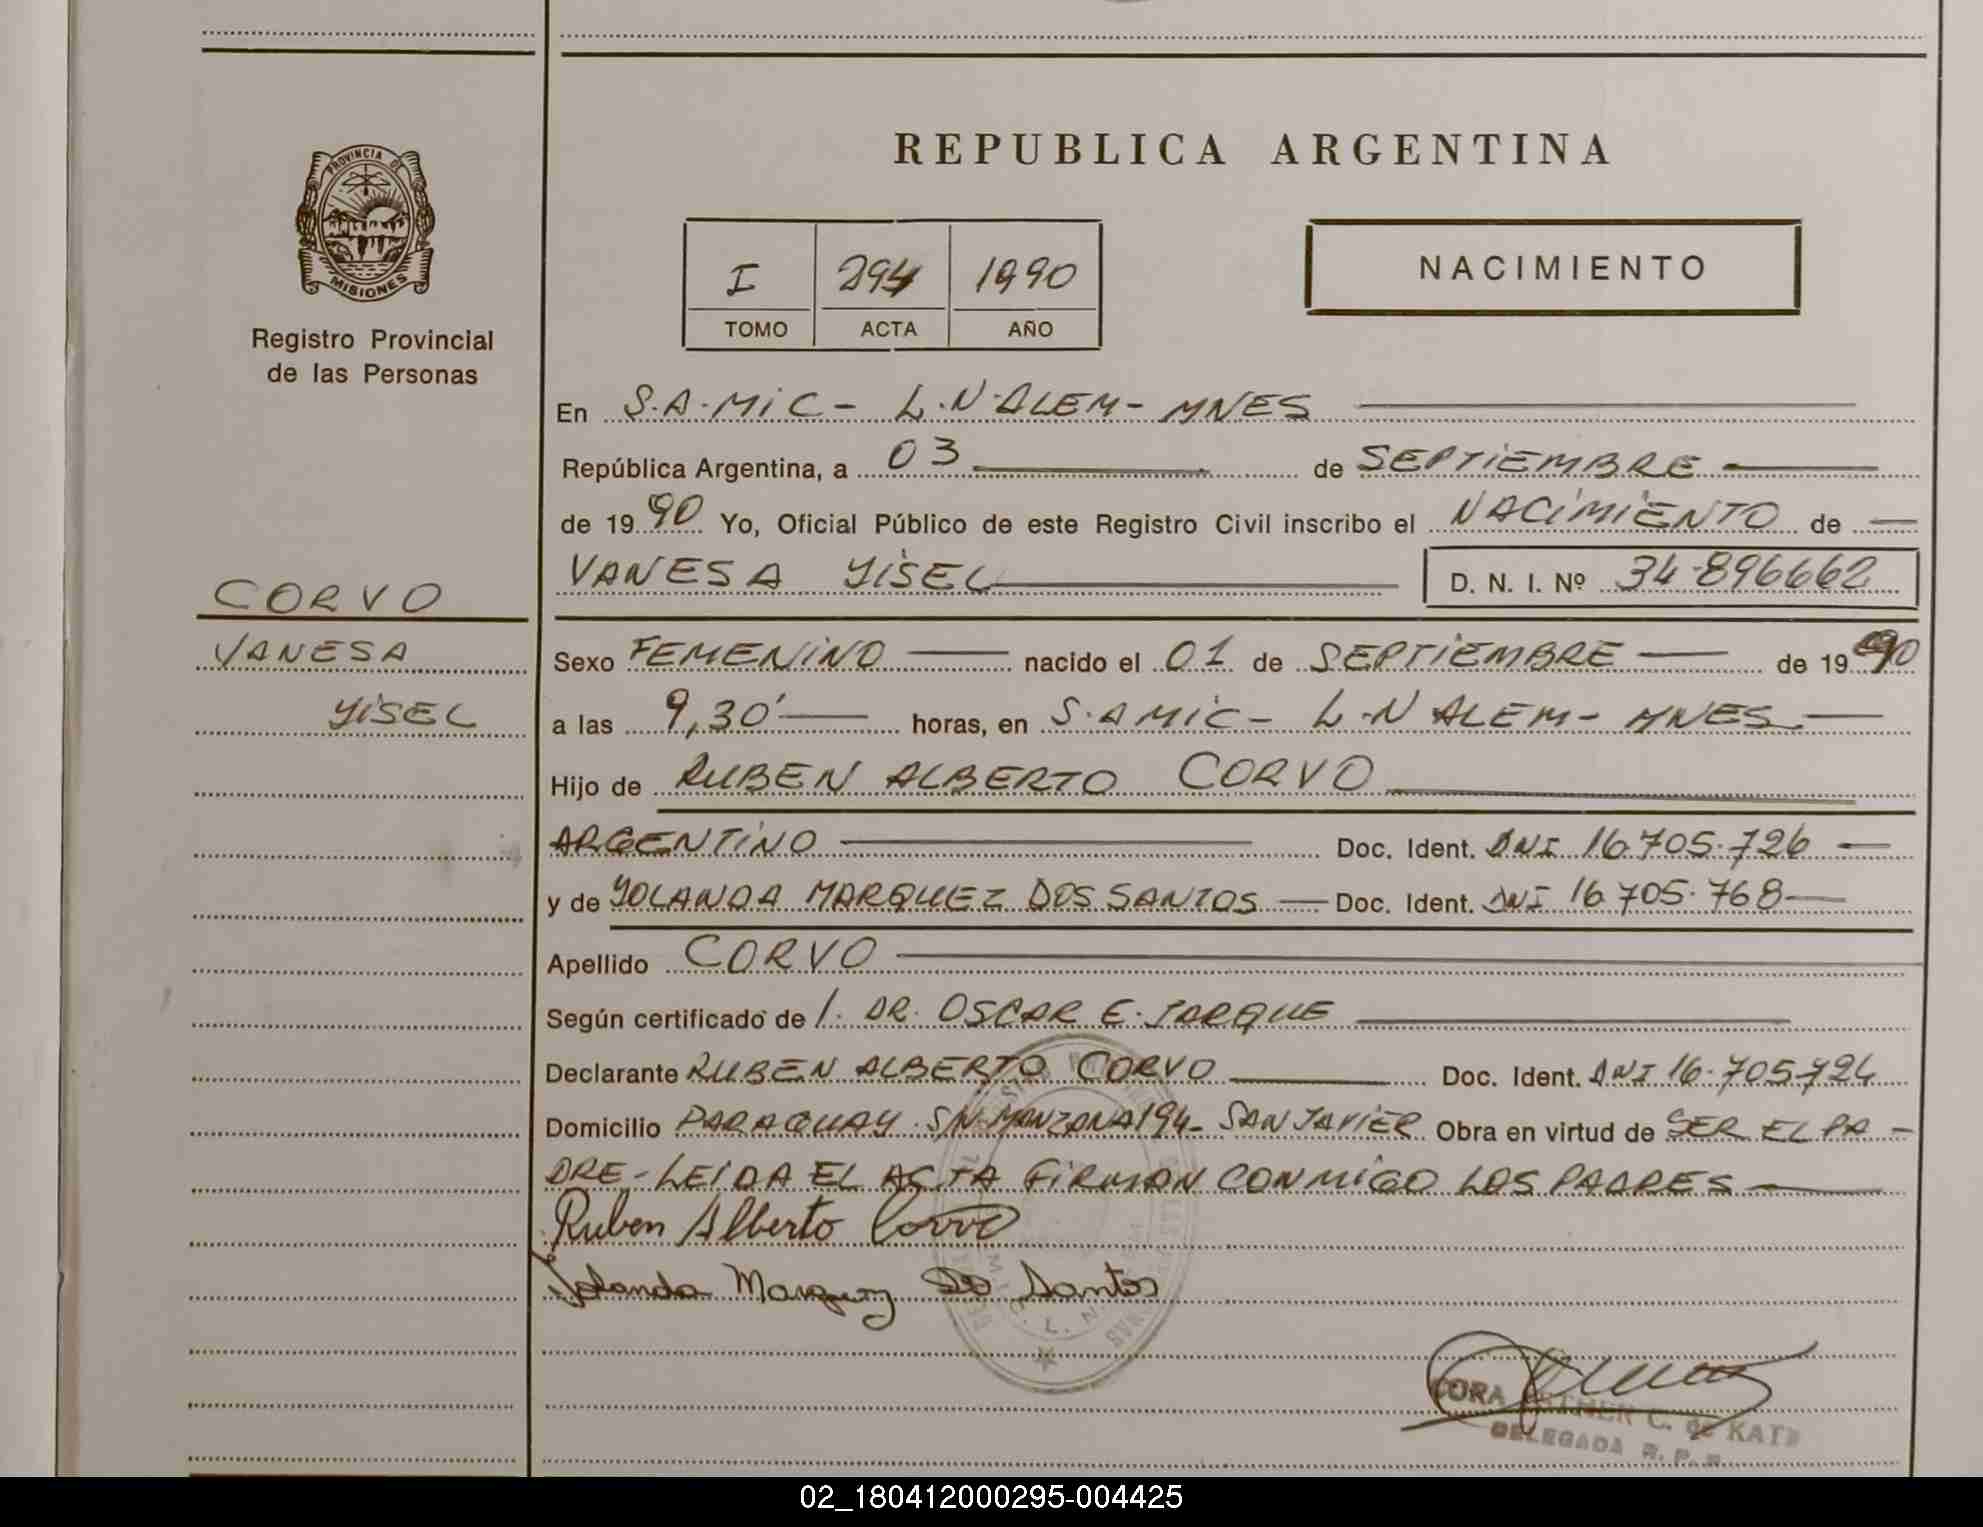 REPUBLICA ARGENTINA
PROVINCIA DE
MISIONES
Registro Provincial
de las Personas
I 294 1990
TOMO ACTA AÑO
NACIMIENTO
En S.A.MIC - L.N.ALEM - MNES
República Argentina, a 03 de SEPTIEMBRE
de 1990 Yo, Oficial Público de este Registro Civil inscribo el NACIMIENTO de
VANESA YISEL D. N. I. Nº 34.896662
CORVO
VANESA
YISEL
Sexo FEMENINO nacido el 01 de SEPTIEMBRE de 1990
a las 9,30' horas, en S.A MIC - L.N ALEM - MNES
Hijo de RUBEN ALBERTO CORVO
ARGENTINO Doc. Ident. DNI 16.705.726
y de YOLANDA MARQUEZ DOS SANTOS Doc. Ident. DNI 16.705.768
Apellido CORVO
Según certificado de /. DR. OSCAR E. JARQUE
Declarante RUBEN ALBERTO CORVO Doc. Ident. DNI 16.705.726
Domicilio PARAGUAY S/N MANZANA 194 - SAN JAVIER Obra en virtud de SER EL PA-
DRE - LEIDA EL ACTA FIRMAN CONMIGO LOS PADRES
Ruben Alberto Corvo
Jolanda Marquez Do Santos
CORA ESTHER C. de KATZ
DELEGADA R. P. P.
02_180412000295-004425